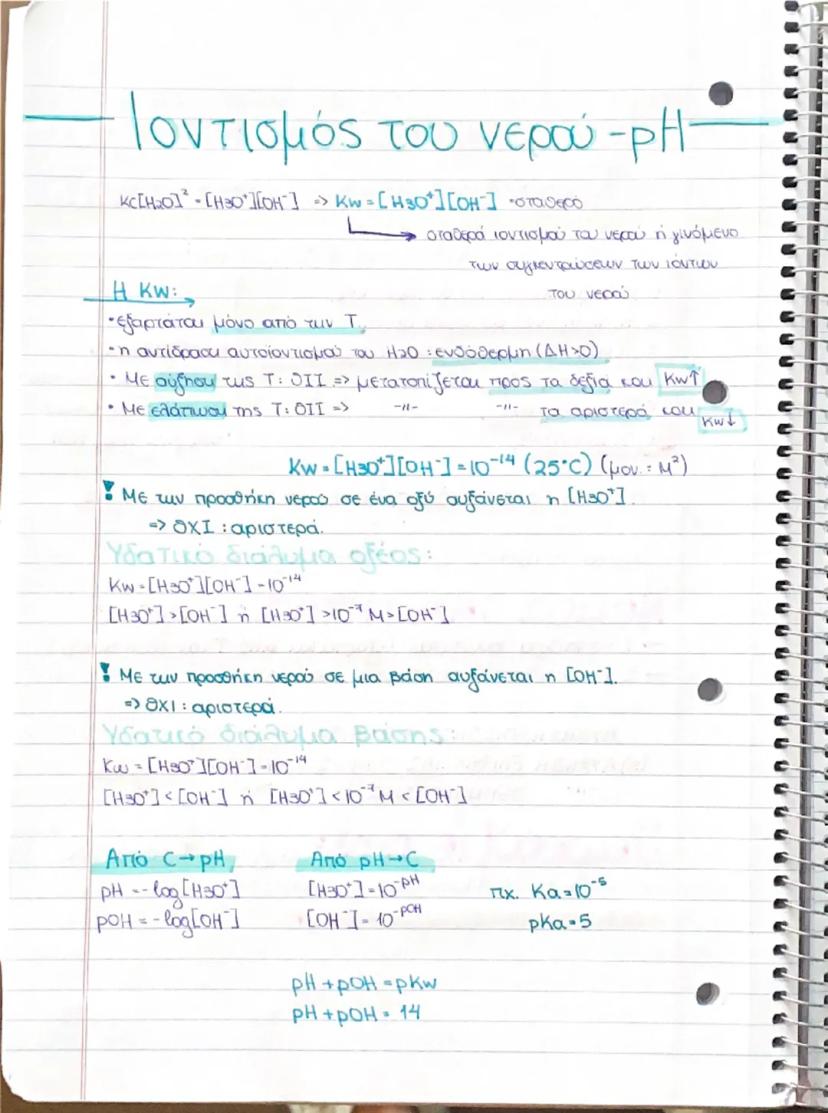 Ιοντισμός του νερού -pH
Kc[H2O]² = [H3O⁺][OH⁻] => Kw = [H3O⁺][OH⁻] · σταθερό
σταθερά ιοντισμού του νερού ή γινόμενο
των συγκεντρώσεων των ιόντων
του νερού
Η Kw:
· εξαρτάται μόνο από την Τ.
· η αντίδραση αυτοϊοντισμού του H2O : ενδόθερμη (ΔH>0)
· Με αύξηση της Τ: ΘΙΙ => μετατοπίζεται προς τα δεξιά και Kw↑
· Με ελάττωση της Τ: ΘΙΙ => -//- -//- τα αριστερά και Kw↓
Kw = [H3O⁺][OH⁻] = 10⁻¹⁴ (25°C) (μον. : M²)
! Με την προσθήκη νερού σε ένα οξύ αυξάνεται η [H3O⁺].
=> ΟΧΙ : αριστερά.
Υδατικό διάλυμα οξέος:
Kw = [H3O⁺][OH⁻] = 10⁻¹⁴
[H3O⁺] > [OH⁻] ή [H3O⁺] > 10⁻⁷ M > [OH⁻]
! Με την προσθήκη νερού σε μια βάση αυξάνεται η [OH⁻].
=> ΟΧΙ : αριστερά.
Υδατικό διάλυμα βάσης:
Kw = [H3O⁺][OH⁻] = 10⁻¹⁴
[H3O⁺] < [OH⁻] ή [H3O⁺] < 10⁻⁷ M < [OH⁻]
Από C → pH Από pH → C
pH = -log[H3O⁺] [H3O⁺] = 10⁻ᵖᴴ πχ. Ka = 10⁻⁵
pOH = -log[OH⁻] [OH⁻] = 10⁻ᵖᴼᴴ pKa = 5
pH + pOH = pKw
pH + pOH = 14